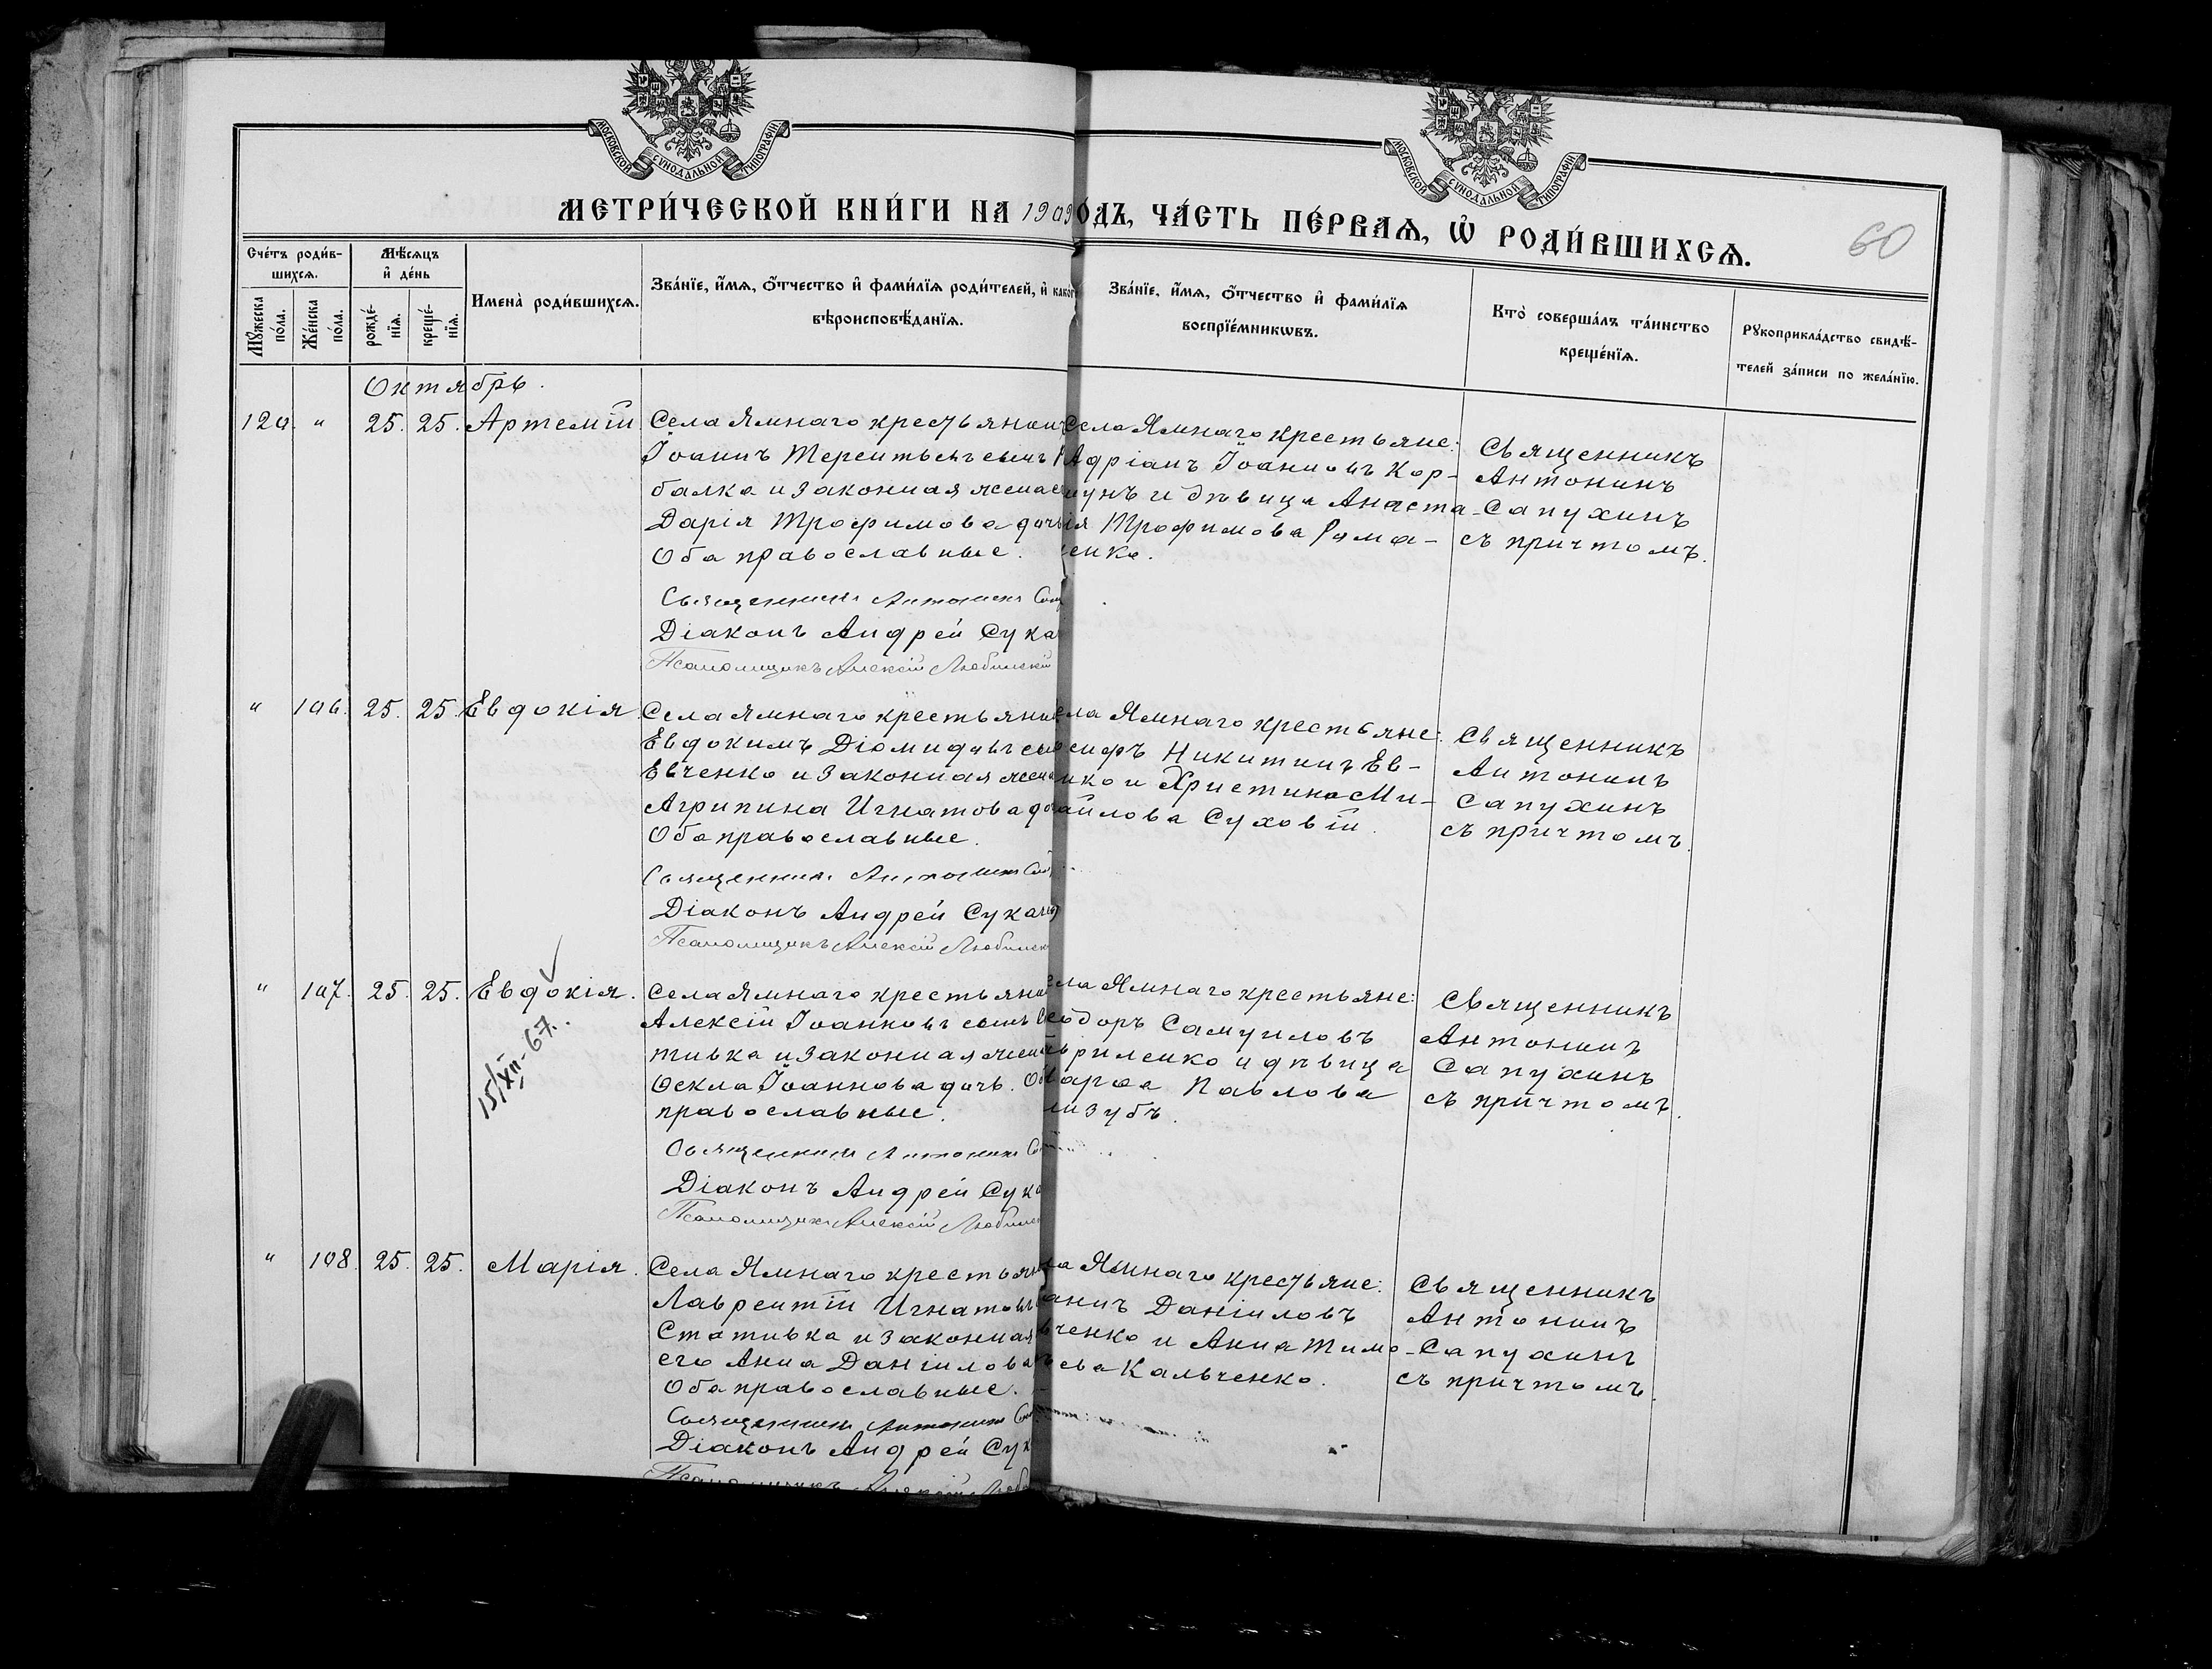 МОСКОВСКОЙ СѴНОДАЛЬНОЙ ТИПОГРАФІИ
МОСКОВСКОЙ СѴНОДАЛЬНОЙ ТИПОГРАФІИ
МЕТРИ́ЧЕСКОЙ КНИ́ГИ НА 1909 ОДЪ, ЧА́СТЬ ПЕ́РВАЯ, Ѡ҆ РОДИ́ВШИХСЯ.
60
Сче́тъ роди́в-
шихся.
Мѣ́сяцъ
и҆ де́нь
Мꙋ́жеска
по́ла.
Же́нска
по́ла.
рожде́-
нїя.
креще́-
нїя.
Имена̀ роди́вшихся.
Зва́нїе, и҆́мя, ѻ҆́тчество и҆ фами́лїя роди́телей, и҆ како́г
вѣроисповѣ́данїя.
Зва́нїе, и҆́мя, ѻ҆́тчество и҆ фами́лїя
воспрїе́мникѡвъ.
Кто̀ соверша́лъ та́инство
креще́нїя.
Рꙋкоприкла́дство свидѣ́-
телей за́писи по жела́нїю.
Октябрь.
120. " 25. 25. Артемій
Села Ямнаго крестьянин
Іоаннъ Терентьевъ сынъ
балка и законная жена е
Дарія Трофимова дочь
Оба православные.
Священникъ Антонинъ Сап
Діаконъ Андрей Сука
Псаломщикъ Алексій Любинскій
Села Ямнаго крестьяне:
Адріанъ Іоанновъ Кор-
унъ и дѣвица Анаста-
ія Трофимова Рома-
енко.
Священникъ
Антонинъ
Сапухинъ
съ причтомъ.
" 106. 25. 25. Евдокія
Села Ямнаго крестьянин
Евдокимъ Діомидовъ сын
Евченко и законная жена
Агрипина Игнатова до
Оба православные.
Священникъ Антонинъ Сап
Діаконъ Андрей Сукач
Псаломщикъ Алексій Любинск
ела Ямнаго крестьяне:
сифъ Никитинъ Ев-
нко и Христина Ми-
айлова Суховій.
Священникъ
Антонинъ
Сапухинъ
съ причтомъ.
" 107. 25. 25. Евдокія.
15/XII-67.
Села Ямнаго крестьяни
Алексій Іоанновъ сынъ С
тивка и законная жена
Ѳекла Іоаннова дочь. Об
православные.
Священникъ Антонинъ Са
Діаконъ Андрей Сука
Псаломщикъ Алексій Любинс
ела Ямнаго крестьяне:
еодоръ Самуиловъ
вриленко и дѣвица
арѳа Павлова
изубъ.
Священникъ
Антонинъ
Сапухинъ
съ причтомъ.
" 108. 25. 25. Марія.
Села Ямнаго крестьян
Лаврентій Игнатовъ
Стативка и законная
его Анна Даніилова
Оба православные.
Священникъ Антонинъ Сап
Діаконъ Андрей Сук
Псаломщикъ Алексій Любо
а Ямнаго крестьяне:
аннъ Даніиловъ
вченко и Анна Тимо-
ева Кальченко.
Священникъ
Антонинъ
Сапухинъ
съ причтомъ.